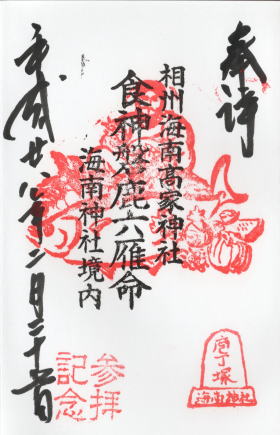 奉拝
相州海南高家神社
食神磐鹿六雁命
海南神社境内
平成廿八年二月二十日
庖丁塚
海南神社
参拝
記念